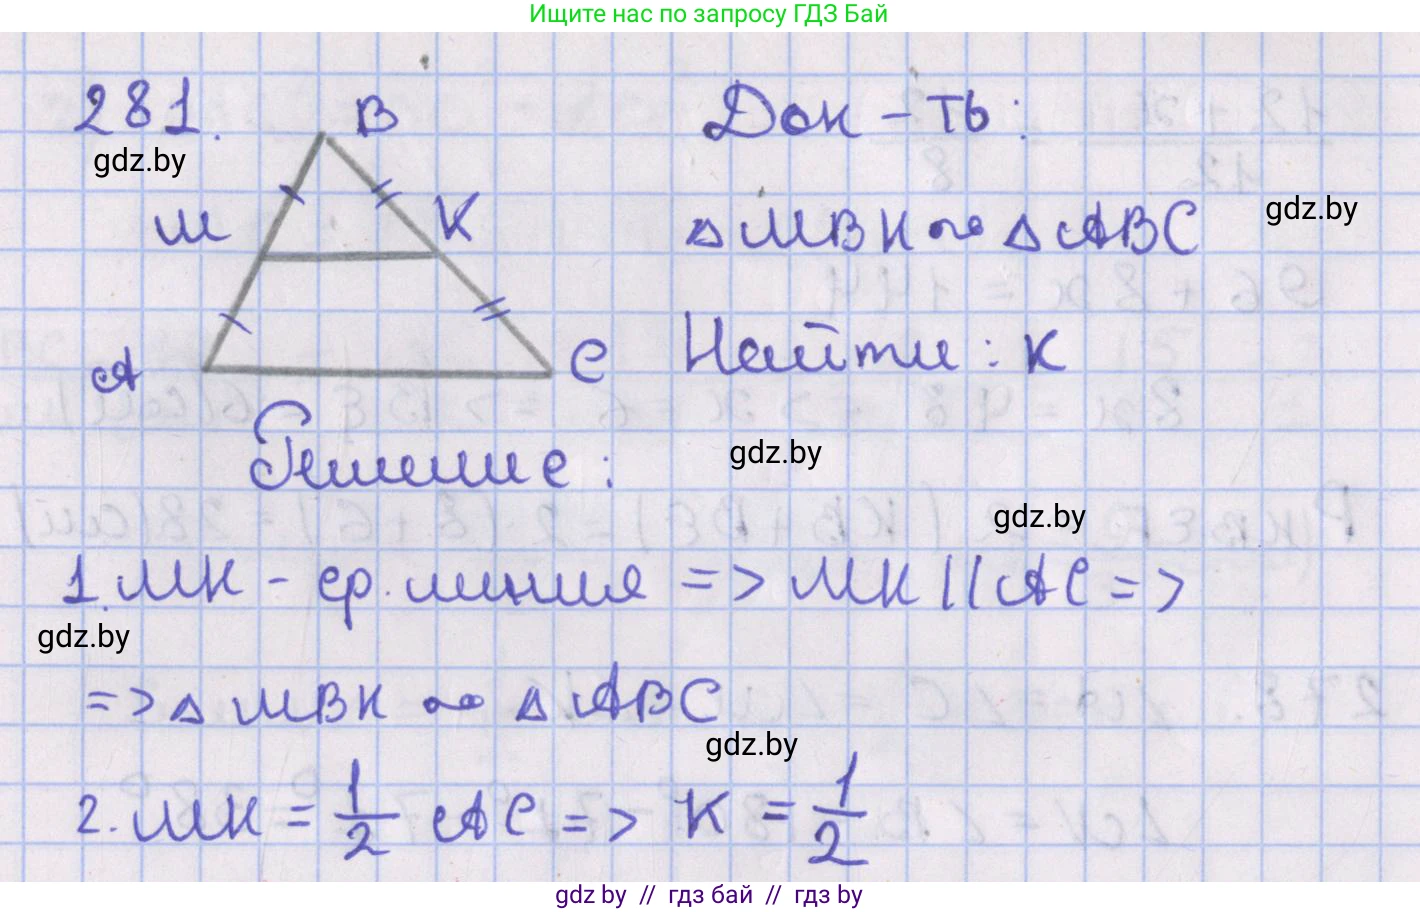 Ищите нас по запросу ГДЗ Бай
281.
B
Док-ть:
gdz.by
M
K
△MBK ∾ △ABC
gdz.by
A
C
Найти: k
Решение:
gdz.by
gdz.by
1. MK - ср. линия => MK || AC =>
gdz.by
=> △MBK ∾ △ABC
gdz.by
2. MK = 1/2 AC => k = 1/2
gdz.by // гдз бай // гдз by